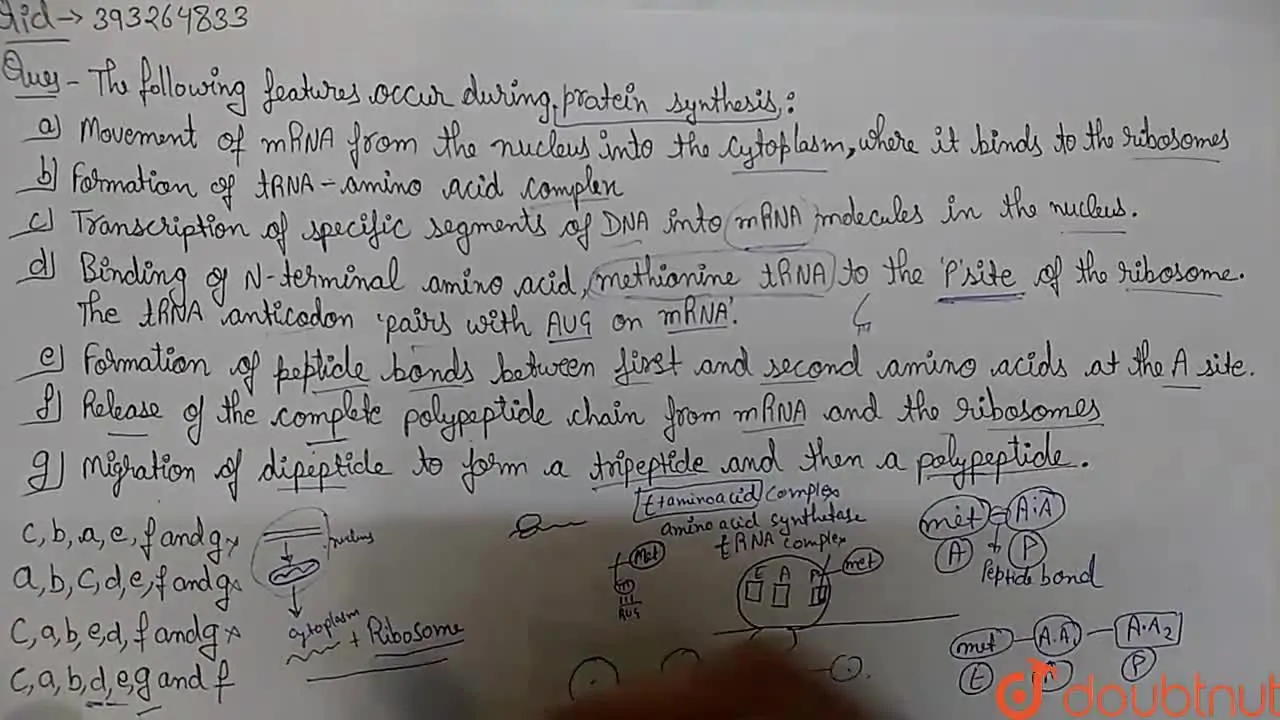 → 393264833
Ques - The following features occur during protein synthesis:
a) Movement of mRNA from the nucleus into the cytoplasm, where it binds to the ribosomes
b) Formation of tRNA - amino acid complex
c) Transcription of specific segments of DNA into mRNA molecules in the nucleus.
d) Binding of N-terminal amino acid, methionine tRNA to the 'P' site of the ribosome.
The tRNA anticodon 'pairs with AUG on mRNA'.
e) Formation of peptide bonds between first and second amino acids at the A site.
f) Release of the complete polypeptide chain from mRNA and the ribosomes
g) Migration of dipeptide to form a tripeptide and then a polypeptide.
c, b, a, e, f and g x
a, b, c, d, e, f and g x
c, a, b, e, d, f and g x
c, a, b, d, e, g and f
nucleus
cytoplasm
+ Ribosome
t+aminoacid complex
amino acid synthetase
tRNA complex
Met
AUG
E A P
met
met A.A
A P
Peptide bond
met A.A1 A.A2
E P
doubtnut